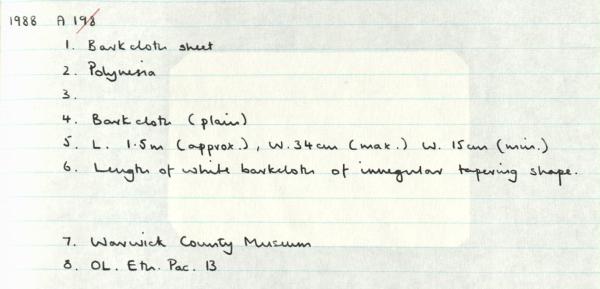 1988 A 198
1. Barkcloth sheet
2. Polynesia
3.
4. Barkcloth (plain)
5. L. 1.5m (approx.), W. 34cm (max.) W. 15cm (min.)
6. Length of white barkcloth of irregular tapering shape.
7. Warwick County Museum
8. OL. Eth. Pac. 13